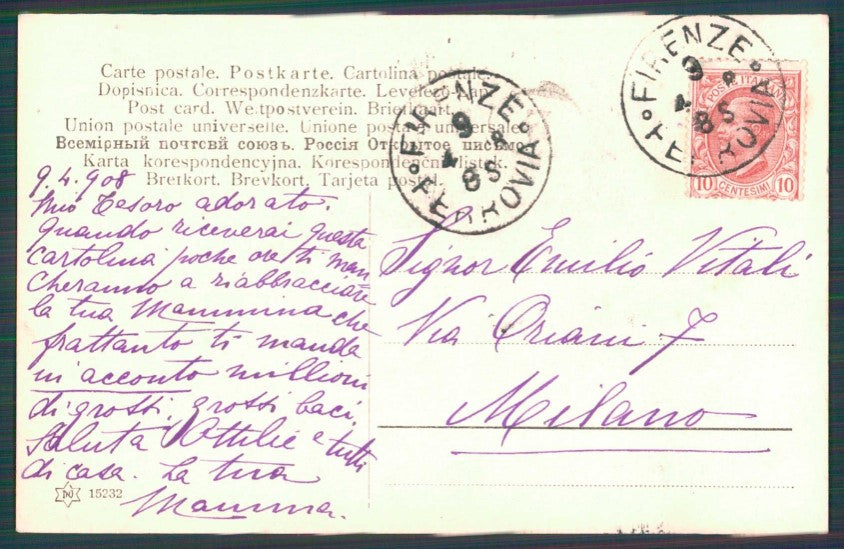 Carte postale. Postkarte. Cartolina postale.
Dopisnica. Correspondenzkarte. Levelező-Lap.
Post card. Weltpostverein. Briefkaart.
Union postale universelle. Unione postale universale.
Всемірный почтовй союзъ. Россія Открытое письмо.
Karta korespondencyjna. Korespondenční lístek.
Brefkort. Brevkort. Tarjeta postal.
FIRENZE
9
4
8 S
FERROVIA
FIRENZE
9
4
8 S
FERROVIA
POSTE ITALIANE
10 CENTESIMI 10
9.4.908
Mio tesoro adorato.
Quando riceverai questa
cartolina poche ore ti man
cheranno a riabbracciare
la tua Mammina che
frattanto ti manda
in acconto millioni
di grossi, grossi baci.
Saluta l'Ottilie e tutti
di casa. La tua
Mamma.
Signor Emilio Vitali
Via Oriani 7
Milano
15232